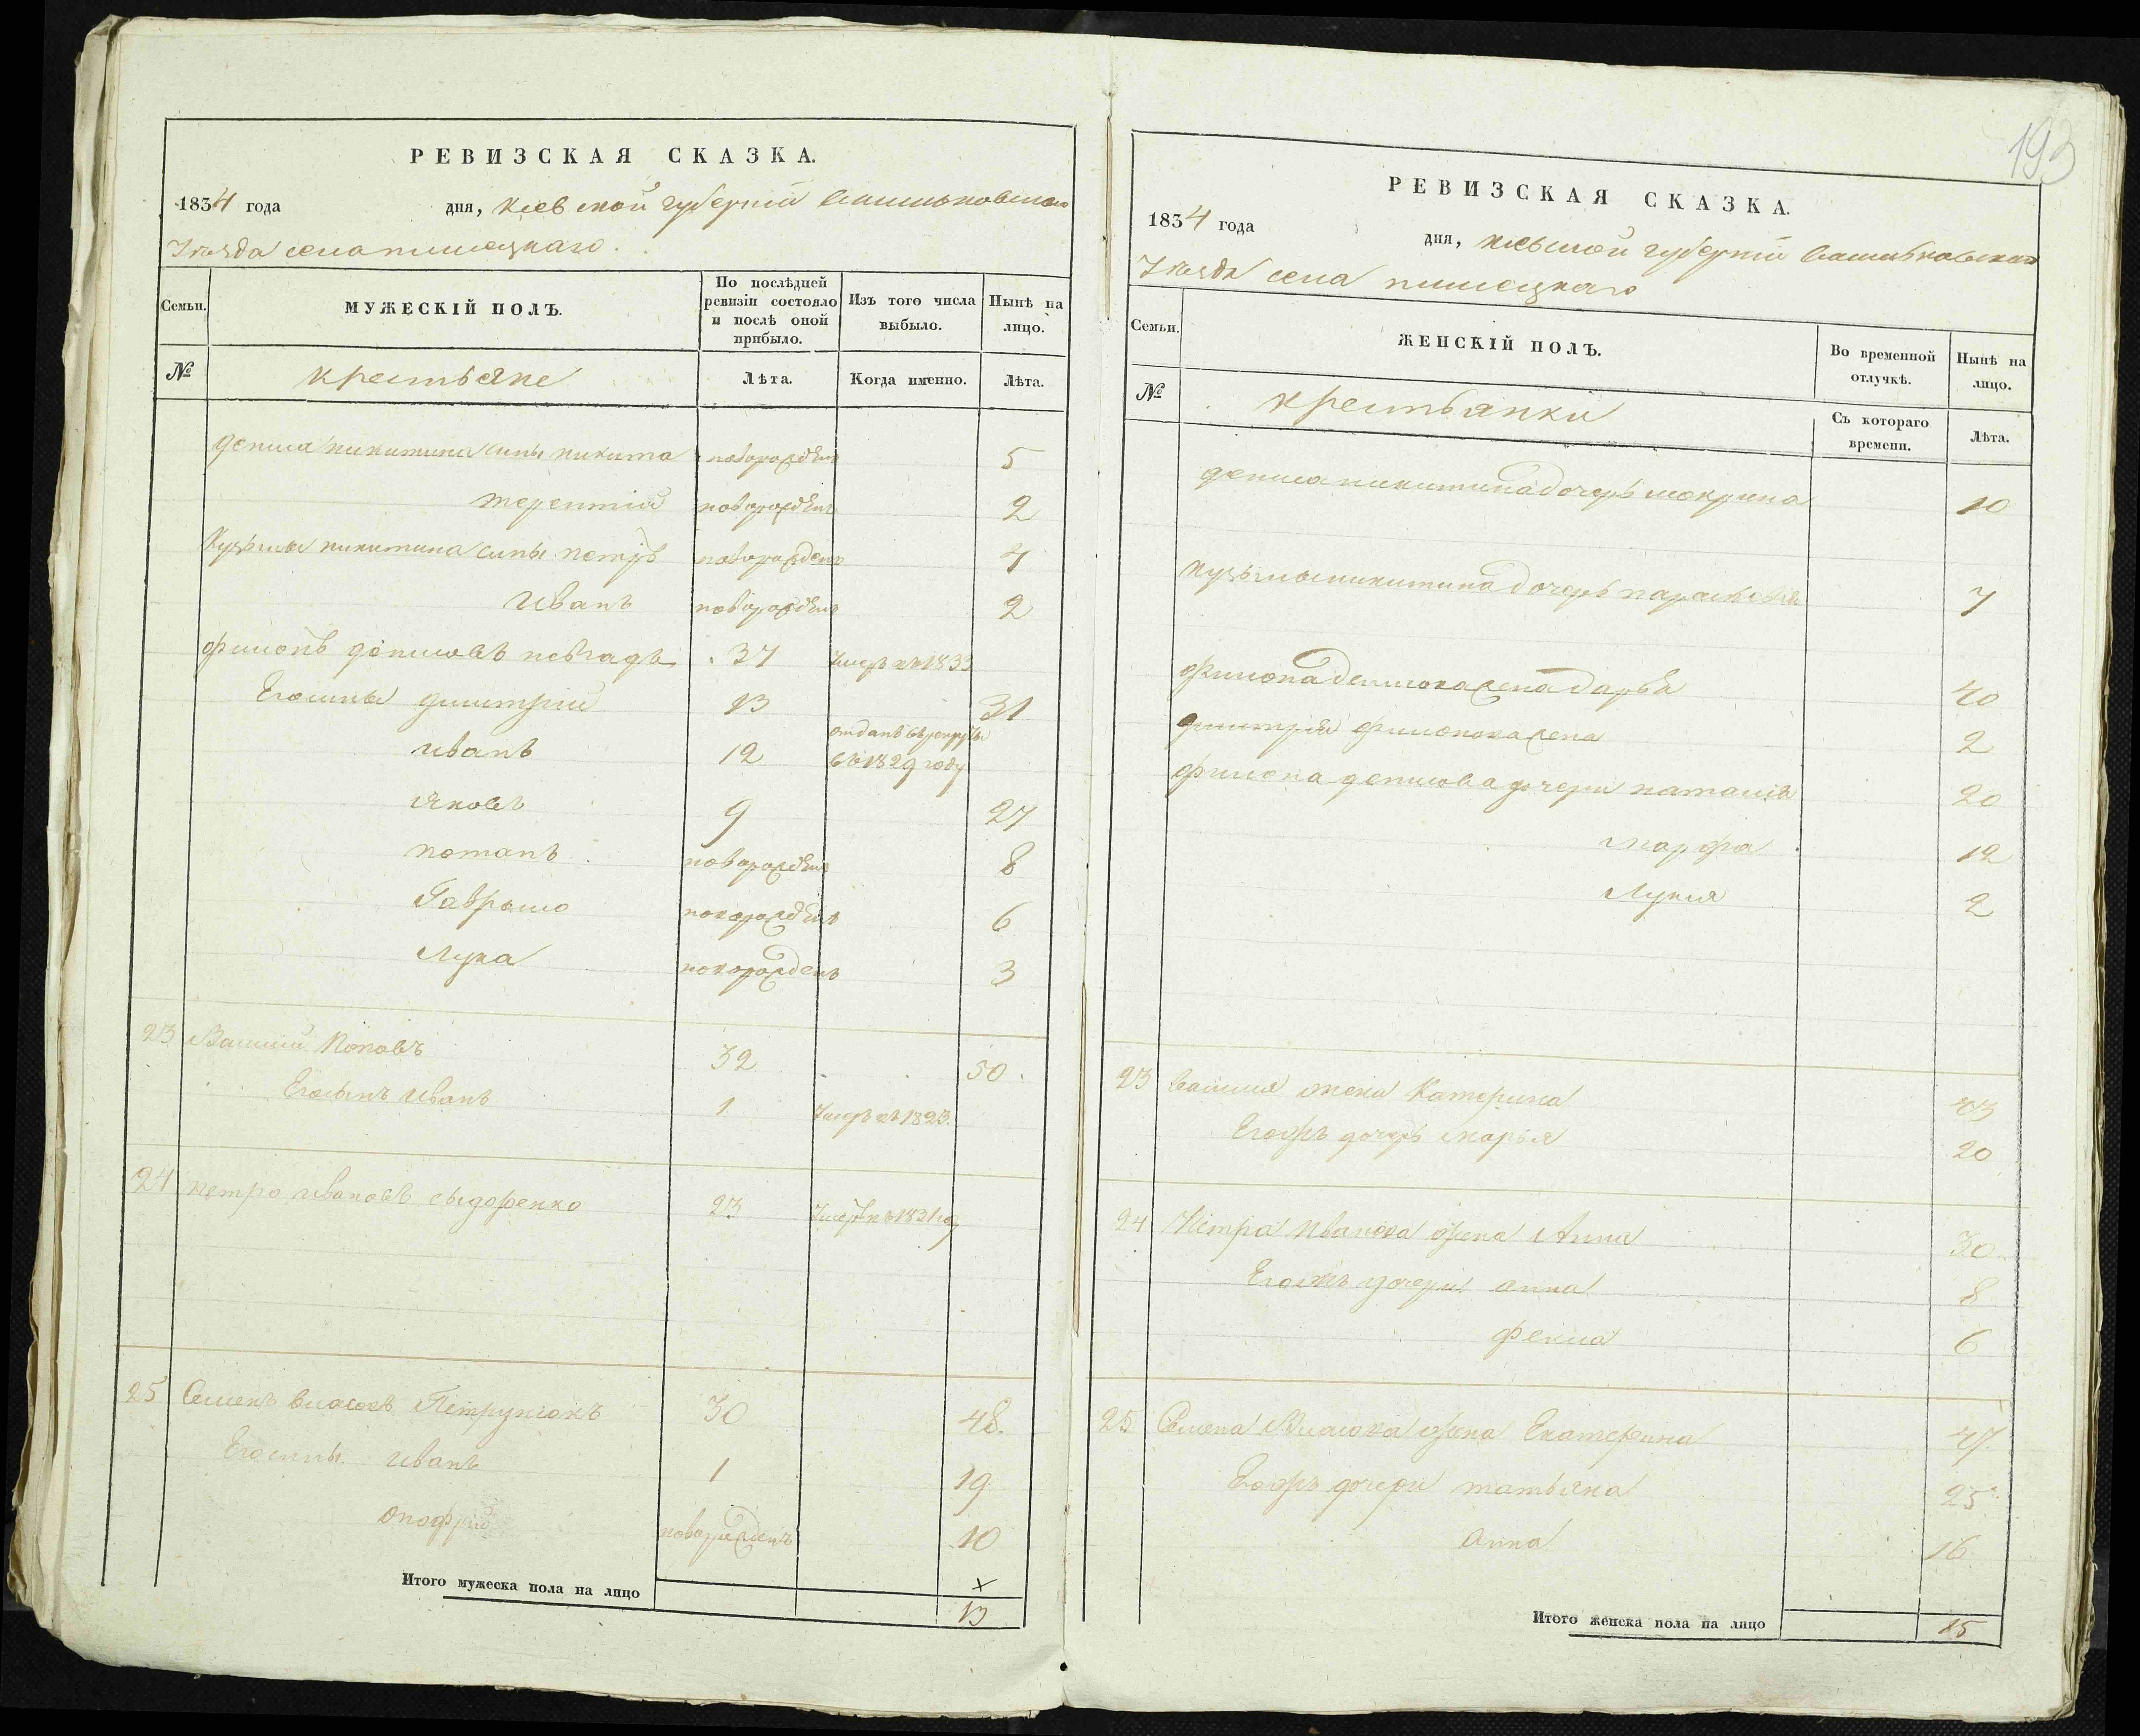 193
РЕВИЗСКАЯ СКАЗКА.
1834 года дня, Кіевской губерніи Васильковскаго
Уѣзда села
Семьи.
МУЖЕСКІЙ ПОЛЪ.
По послѣдней ревизіи состояло и послѣ оной прибыло.
Изъ того числа выбыло.
Нынѣ на лицо.
№
крестьяне
Лѣта.
Когда именно.
Лѣта.
дениса никитина сины никита новорожденъ 5
терентий новорожденъ 2
Кузьмы никитина сины петръ новорожденъ 4
Иванъ новорожденъ 2
филонъ денисовъ 37 Умеръ въ 1833
Его сины димитрий 13 31
иванъ 12 отданъ въ рекруты въ 1829 году
Яковъ 9 27
потапъ новорожденъ 8
Гаврыло новорожденъ 6
Лука новорожденъ 3
23 Василий 32 50.
Его сынъ Иванъ 1 Умеръ въ 1823.
24 петро ивановъ сыдоренко 23 Умеръ въ 1831 го
25 Семенъ власовъ 30 48.
Его сины иванъ 1 19
Онофрий новорожденъ 10
Итого мужеска пола на лицо 13
РЕВИЗСКАЯ СКАЗКА.
1834 года дня, Кіевской губерніи Васильковскаго
Уѣзда села
Семьи.
ЖЕНСКІЙ ПОЛЪ.
Во временной отлучкѣ.
Нынѣ на лицо.
№
крестьянки
Съ котораго времени.
Лѣта.
дениса никитина дочерь мокрина 10
кузьмы никитина дочерь параскевия 7
филона денисова жена дарья 40
димитрия филонова жена 2
филона денисова дочери наталия 20
марфа 12
Лукия 2
23 василия жена Катерина 43
Егожъ дочерь марья 20
24 Петра Иванова жена Анна 30
Егожъ дочери анна 8
фекла 6
25 Семена Власова жена Екатерина 47
Егожъ дочери татьяна 25
Анна 16
Итого женска пола на лицо 15